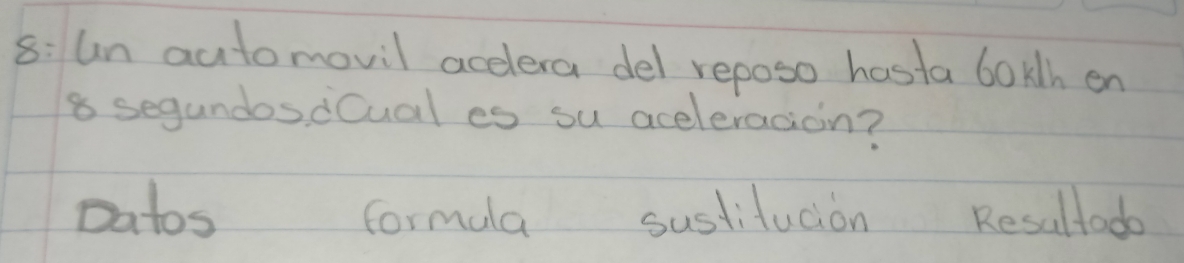 8: Un automovil acelera del reposo hasta 60k/h en
8 segundos.¿Cual es su aceleración?
Datos formula sustitución Resultado